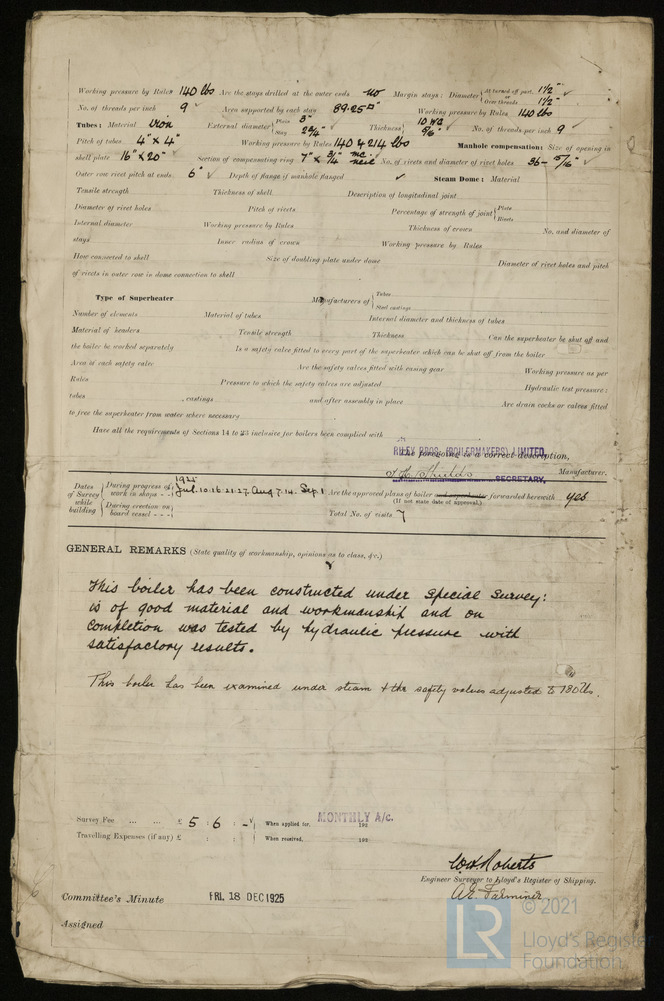 Working pressure by Rules 140 lbs Are the stays drilled at the outer ends no Margin stays: Diameter { At turned off part, 1 1/2" or Over threads 1 1/2"
No. of threads per inch 9 Area supported by each stay 89.25 □" Working pressure by Rules 140 lbs
Tubes: Material Iron External diameter { Plain 3" Stay 2 3/4" Thickness { 10 WG 5/16" No. of threads per inch 9
Pitch of tubes 4" x 4" Working pressure by Rules 140 & 214 lbs Manhole compensation: Size of opening in
shell plate 16" x 20" Section of compensating ring 7" x 3/4" No. of rivets and diameter of rivet holes 36 - 15/16"
Outer row rivet pitch at ends 6" Depth of flange if manhole flanged Steam Dome: Material
Tensile strength Thickness of shell Description of longitudinal joint
Diameter of rivet holes Pitch of rivets Percentage of strength of joint { Plate Rivets
Internal diameter Working pressure by Rules Thickness of crown No. and diameter of
stays Inner radius of crown Working pressure by Rules
How connected to shell Size of doubling plate under dome Diameter of rivet holes and pitch
of rivets in outer row in dome connection to shell
Type of Superheater Manufacturers of { Tubes Steel castings
Number of elements Material of tubes Internal diameter and thickness of tubes
Material of headers Tensile strength Thickness Can the superheater be shut off and
the boiler be worked separately Is a safety valve fitted to every part of the superheater which can be shut off from the boiler
Area of each safety valve Are the safety valves fitted with easing gear Working pressure as per
Rules Pressure to which the safety valves are adjusted Hydraulic test pressure:
tubes , castings and after assembly in place Are drain cocks or valves fitted
to free the superheater from water where necessary
Have all the requirements of Sections 14 to 23 inclusive for boilers been complied with
RILEY BROS. (BOILERMAKERS) LIMITED.
The foregoing is a correct description,
Shields SECRETARY, Manufacturer.
Dates of Survey while building { During progress of work in shops - - 1925 Jul. 10. 16. 21. 27. Aug 7. 14. Sep. 1 Are the approved plans of boiler and superheater forwarded herewith yes
(If not state date of approval.)
During erection on board vessel - - - Total No. of visits 7
GENERAL REMARKS (State quality of workmanship, opinions as to class, &c.)
This boiler has been constructed under Special Survey:
is of good material and workmanship and on
completion was tested by hydraulic pressure with
satisfactory results.
This boiler has been examined under steam & the safety valves adjusted to 130 lbs.
Survey Fee ... ... £ 5 : 6 : - When applied for, MONTHLY A/c. 192
Travelling Expenses (if any) £ : : When received, 192
Roberts
Engineer Surveyor to Lloyd's Register of Shipping.
Committee's Minute FRI. 18 DEC 1925
Assigned
LR © 2021
Lloyd's Register
Foundation